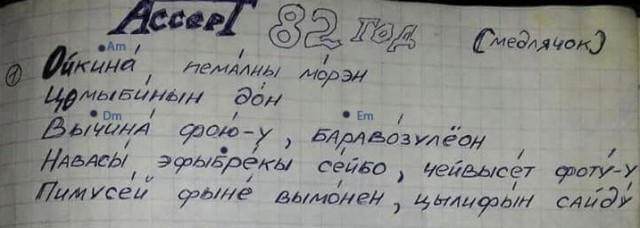 Accept 82 год (медлячок)
Am
① Ойкина́ пема́лны мо́рэн
Цомыби́нын до́н
Dm Em
Вы́чина́ фою́-у, бараво́зулёон
Навасы́ эфыбре́кы се́йбо, чейвысе́т фоту́-у
Пимусе́й фыне́ вымо́нен, цылифы́н сайду́